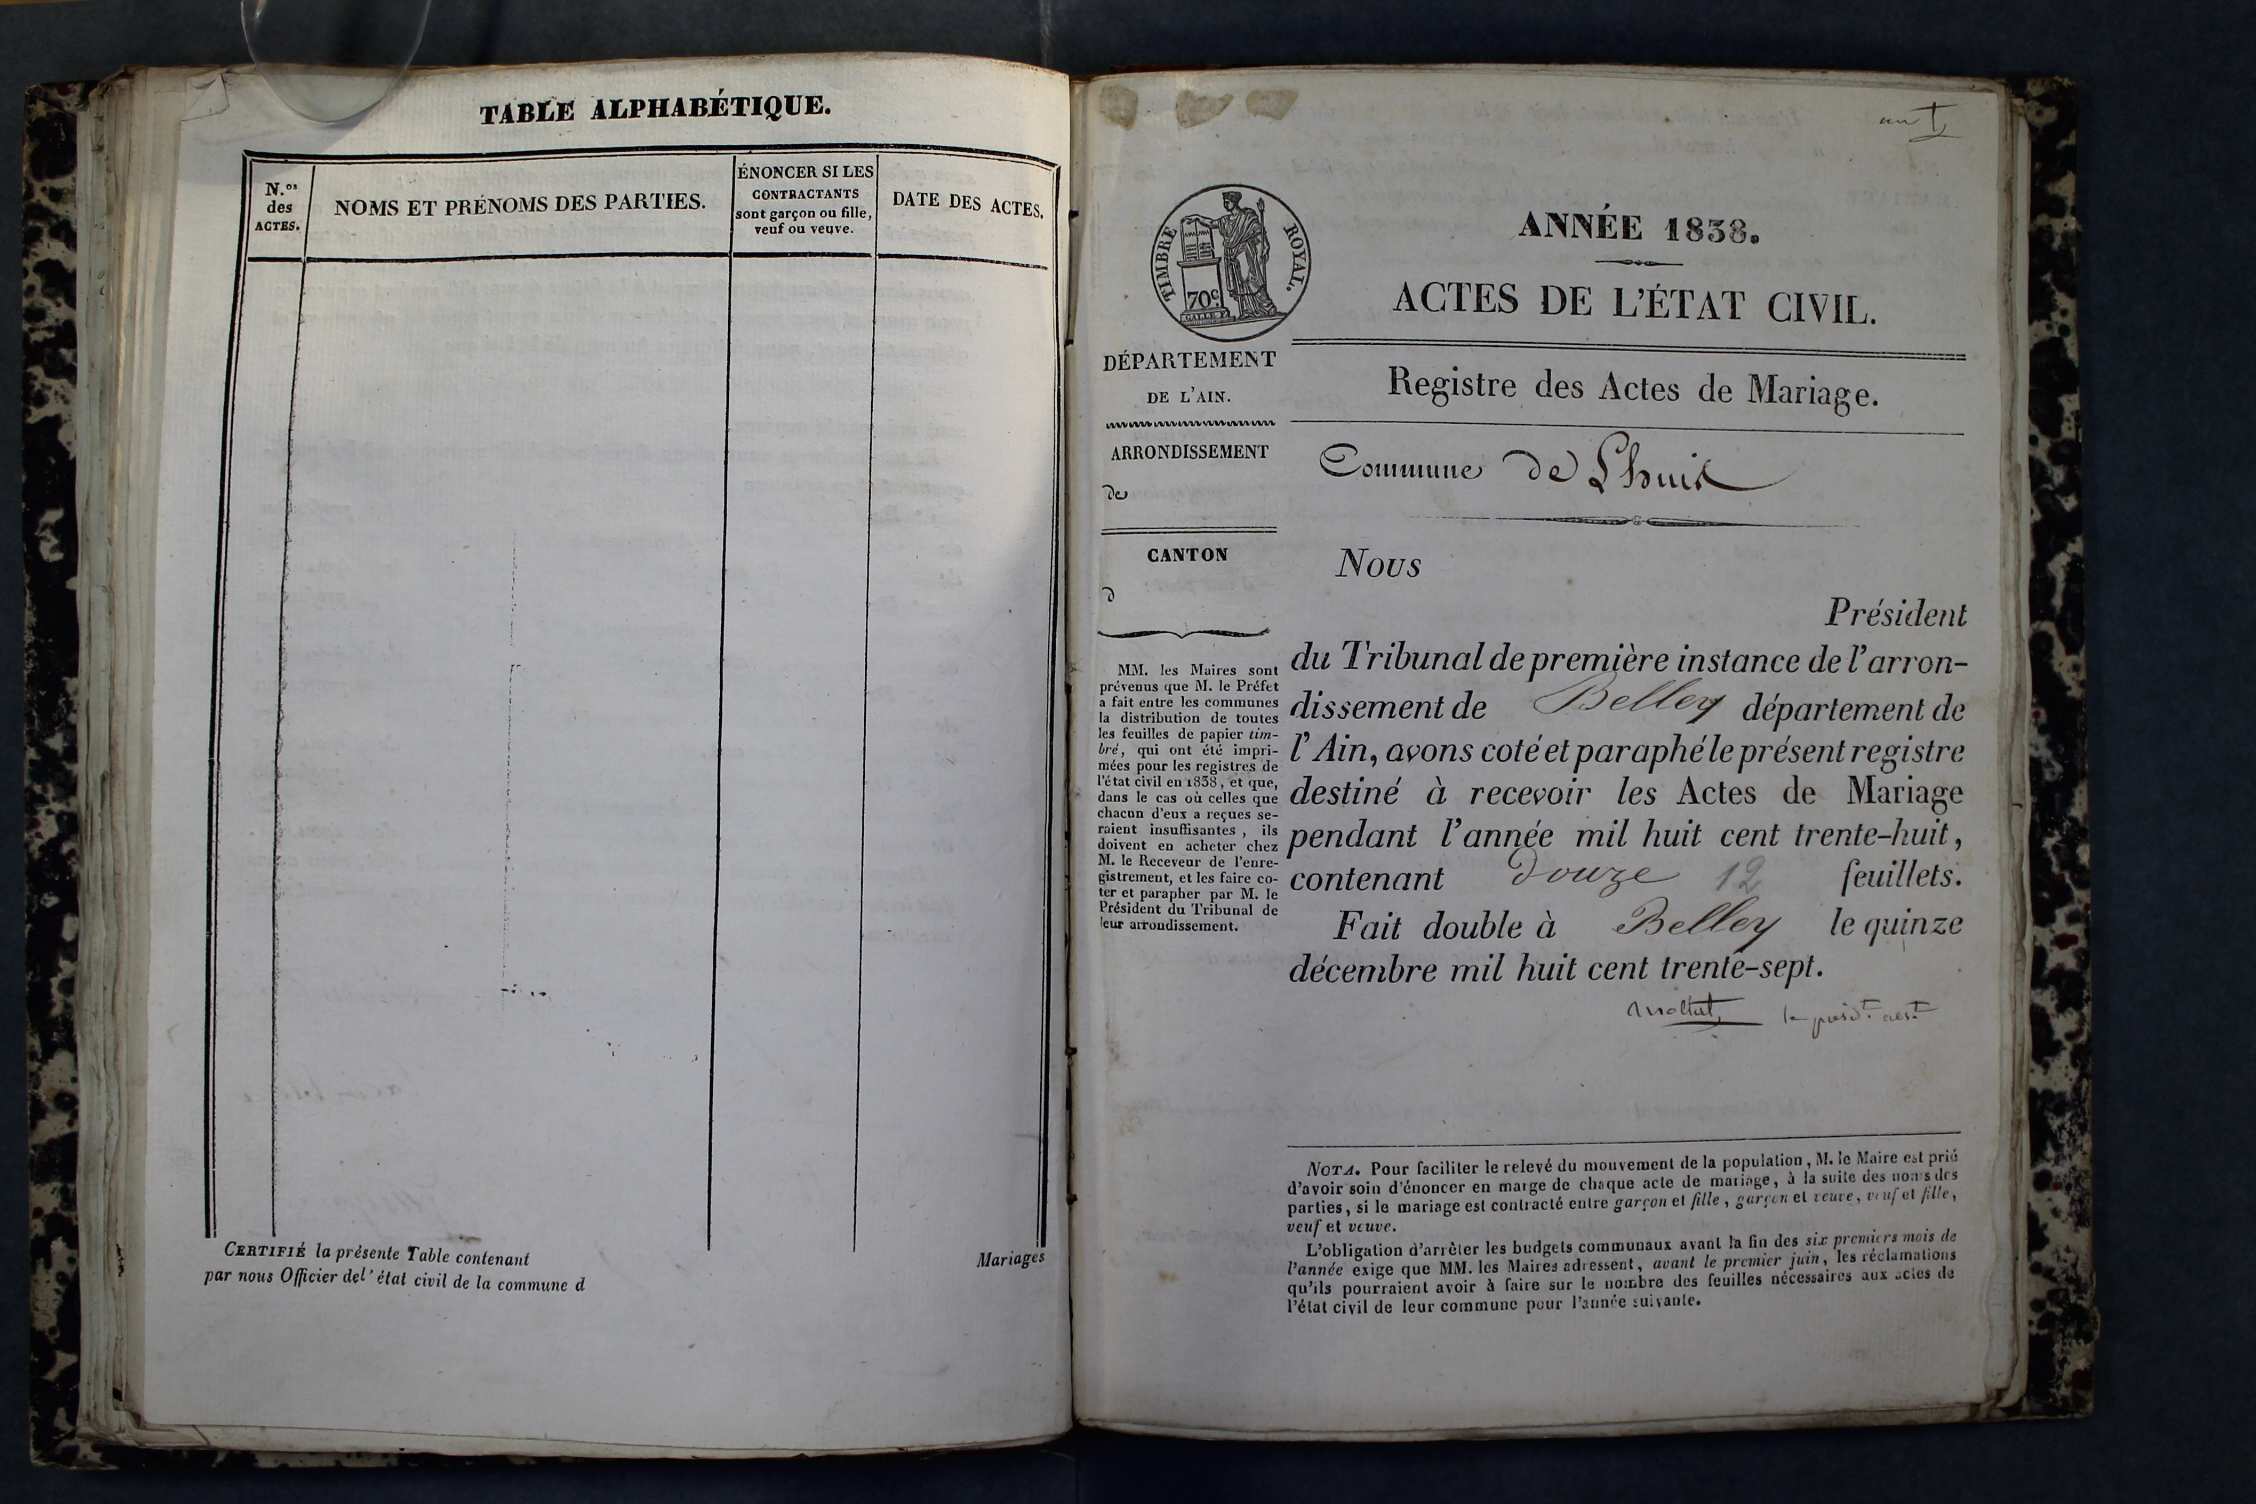 TABLE ALPHABÉTIQUE.
N.os
des
ACTES.
NOMS ET PRÉNOMS DES PARTIES.
ÉNONCER SI LES
CONTRACTANTS
sont garçon ou fille,
veuf ou veuve.
DATE DES ACTES.
CERTIFIÉ la présente Table contenant
par nous Officier del'état civil de la commune d
Mariages
TIMBRE ROYAL.
70c.
ANNÉE 1838.
ACTES DE L'ÉTAT CIVIL.
DÉPARTEMENT
DE L'AIN.
ARRONDISSEMENT
de
CANTON
d
MM. les Maires sont
prévenus que M. le Préfet
a fait entre les communes
la distribution de toutes
les feuilles de papier tim-
bré, qui ont été impri-
mées pour les registres de
l'état civil en 1838, et que,
dans le cas où celles que
chacun d'eux a reçues se-
raient insuffisantes, ils
doivent en acheter chez
M. le Receveur de l'enre-
gistrement, et les faire co-
ter et parapher par M. le
Président du Tribunal de
leur arrondissement.
Registre des Actes de Mariage.
Commune de Lhuis
Nous
Président
du Tribunal de première instance de l'arron-
dissement de Belley département de
l'Ain, avons coté et paraphé le présent registre
destiné à recevoir les Actes de Mariage
pendant l'année mil huit cent trente-huit,
contenant Douze 12 feuillets.
Fait double à Belley le quinze
décembre mil huit cent trente-sept.
NOTA. Pour faciliter le relevé du mouvement de la population, M. le Maire est prié
d'avoir soin d'énoncer en marge de chaque acte de mariage, à la suite des noms des
parties, si le mariage est contracté entre garçon et fille, garçon et veuve, veuf et fille,
veuf et veuve.
L'obligation d'arrêter les budgets communaux avant la fin des six premiers mois de
l'année exige que MM. les Maires adressent, avant le premier juin, les réclamations
qu'ils pourraient avoir à faire sur le nombre des feuilles nécessaires aux actes de
l'état civil de leur commune pour l'année suivante.